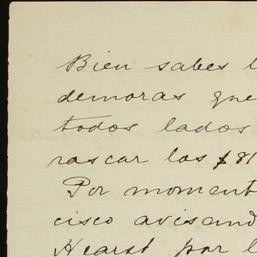 Bien sabes l
demoras que
todos lados
rascar los $81
Por moment
cisco avisand
Hearst por l